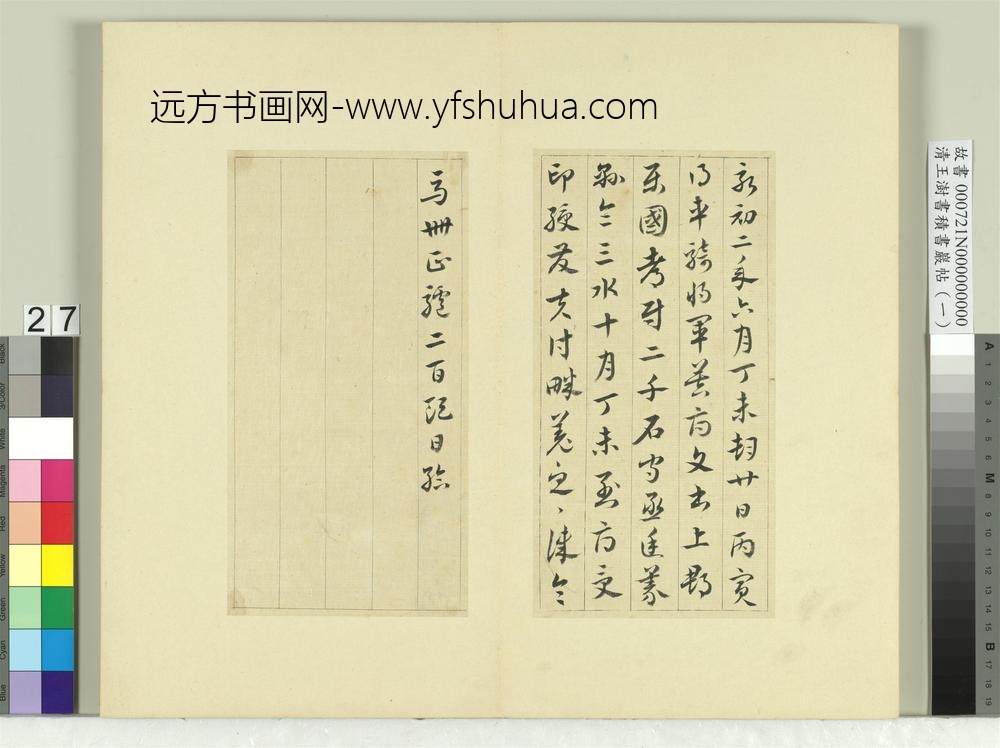 远方书画网-www.yfshuhua.com
永初二年六月丁未朔廿日丙寅
得車騎將軍莫府文書上郡
屬國都尉二千石守丞廷義
縣令三水十月丁未到府受
印綬發夫討畔羌急〻令
馬卅匹驢二百頭日給
故書 000721N000000000
清王澍書積書巖帖(一)
27
Black
3/Color
White
Magenta
Red
Yellow
Green
Cyan
Blue
A 1 2 3 4 5 6 M 8 9 10 11 12 13 14 15 B 17 18 19